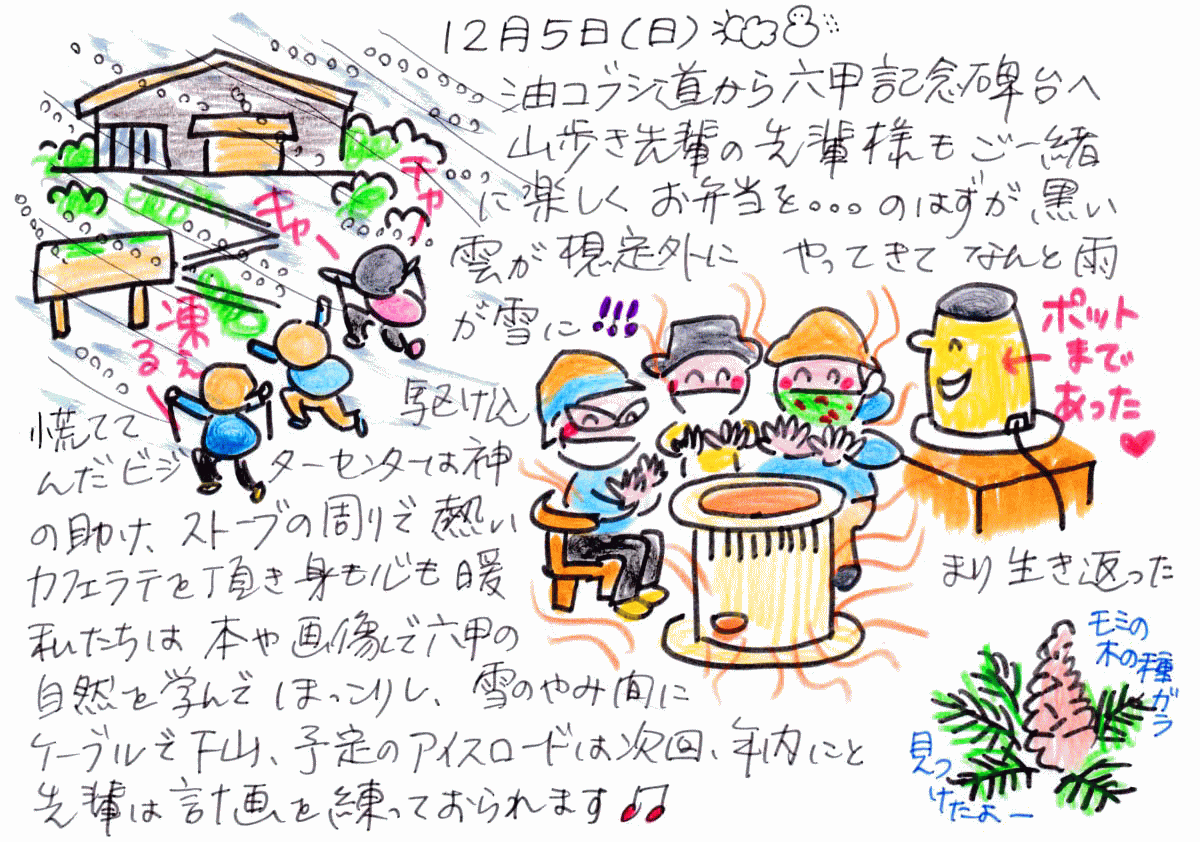 12月5日(日)
油コブシ道から六甲記念碑台へ
山歩き先輩の先輩様もご一緒
に楽しく お弁当を...のはずが、黒い
雲が想定外に やってきて なんと雨
が雪に!!!
キャー
チャー
凍えるー
慌てて 駆け込
んだビジターセンターは神
の助け、ストーブの周りで熱い
カフェラテを頂き身も心も暖
まり生き返った
私たちは 本や画像で六甲の
自然を学んで ほっこりし、雪のやみ間に
ケーブルで下山、予定のアイスロードは次回、年内にと
先輩は計画を練っておられます♫
ポット
まで
あった
♥
モミの
木の種ガラ
見つ
けたよー